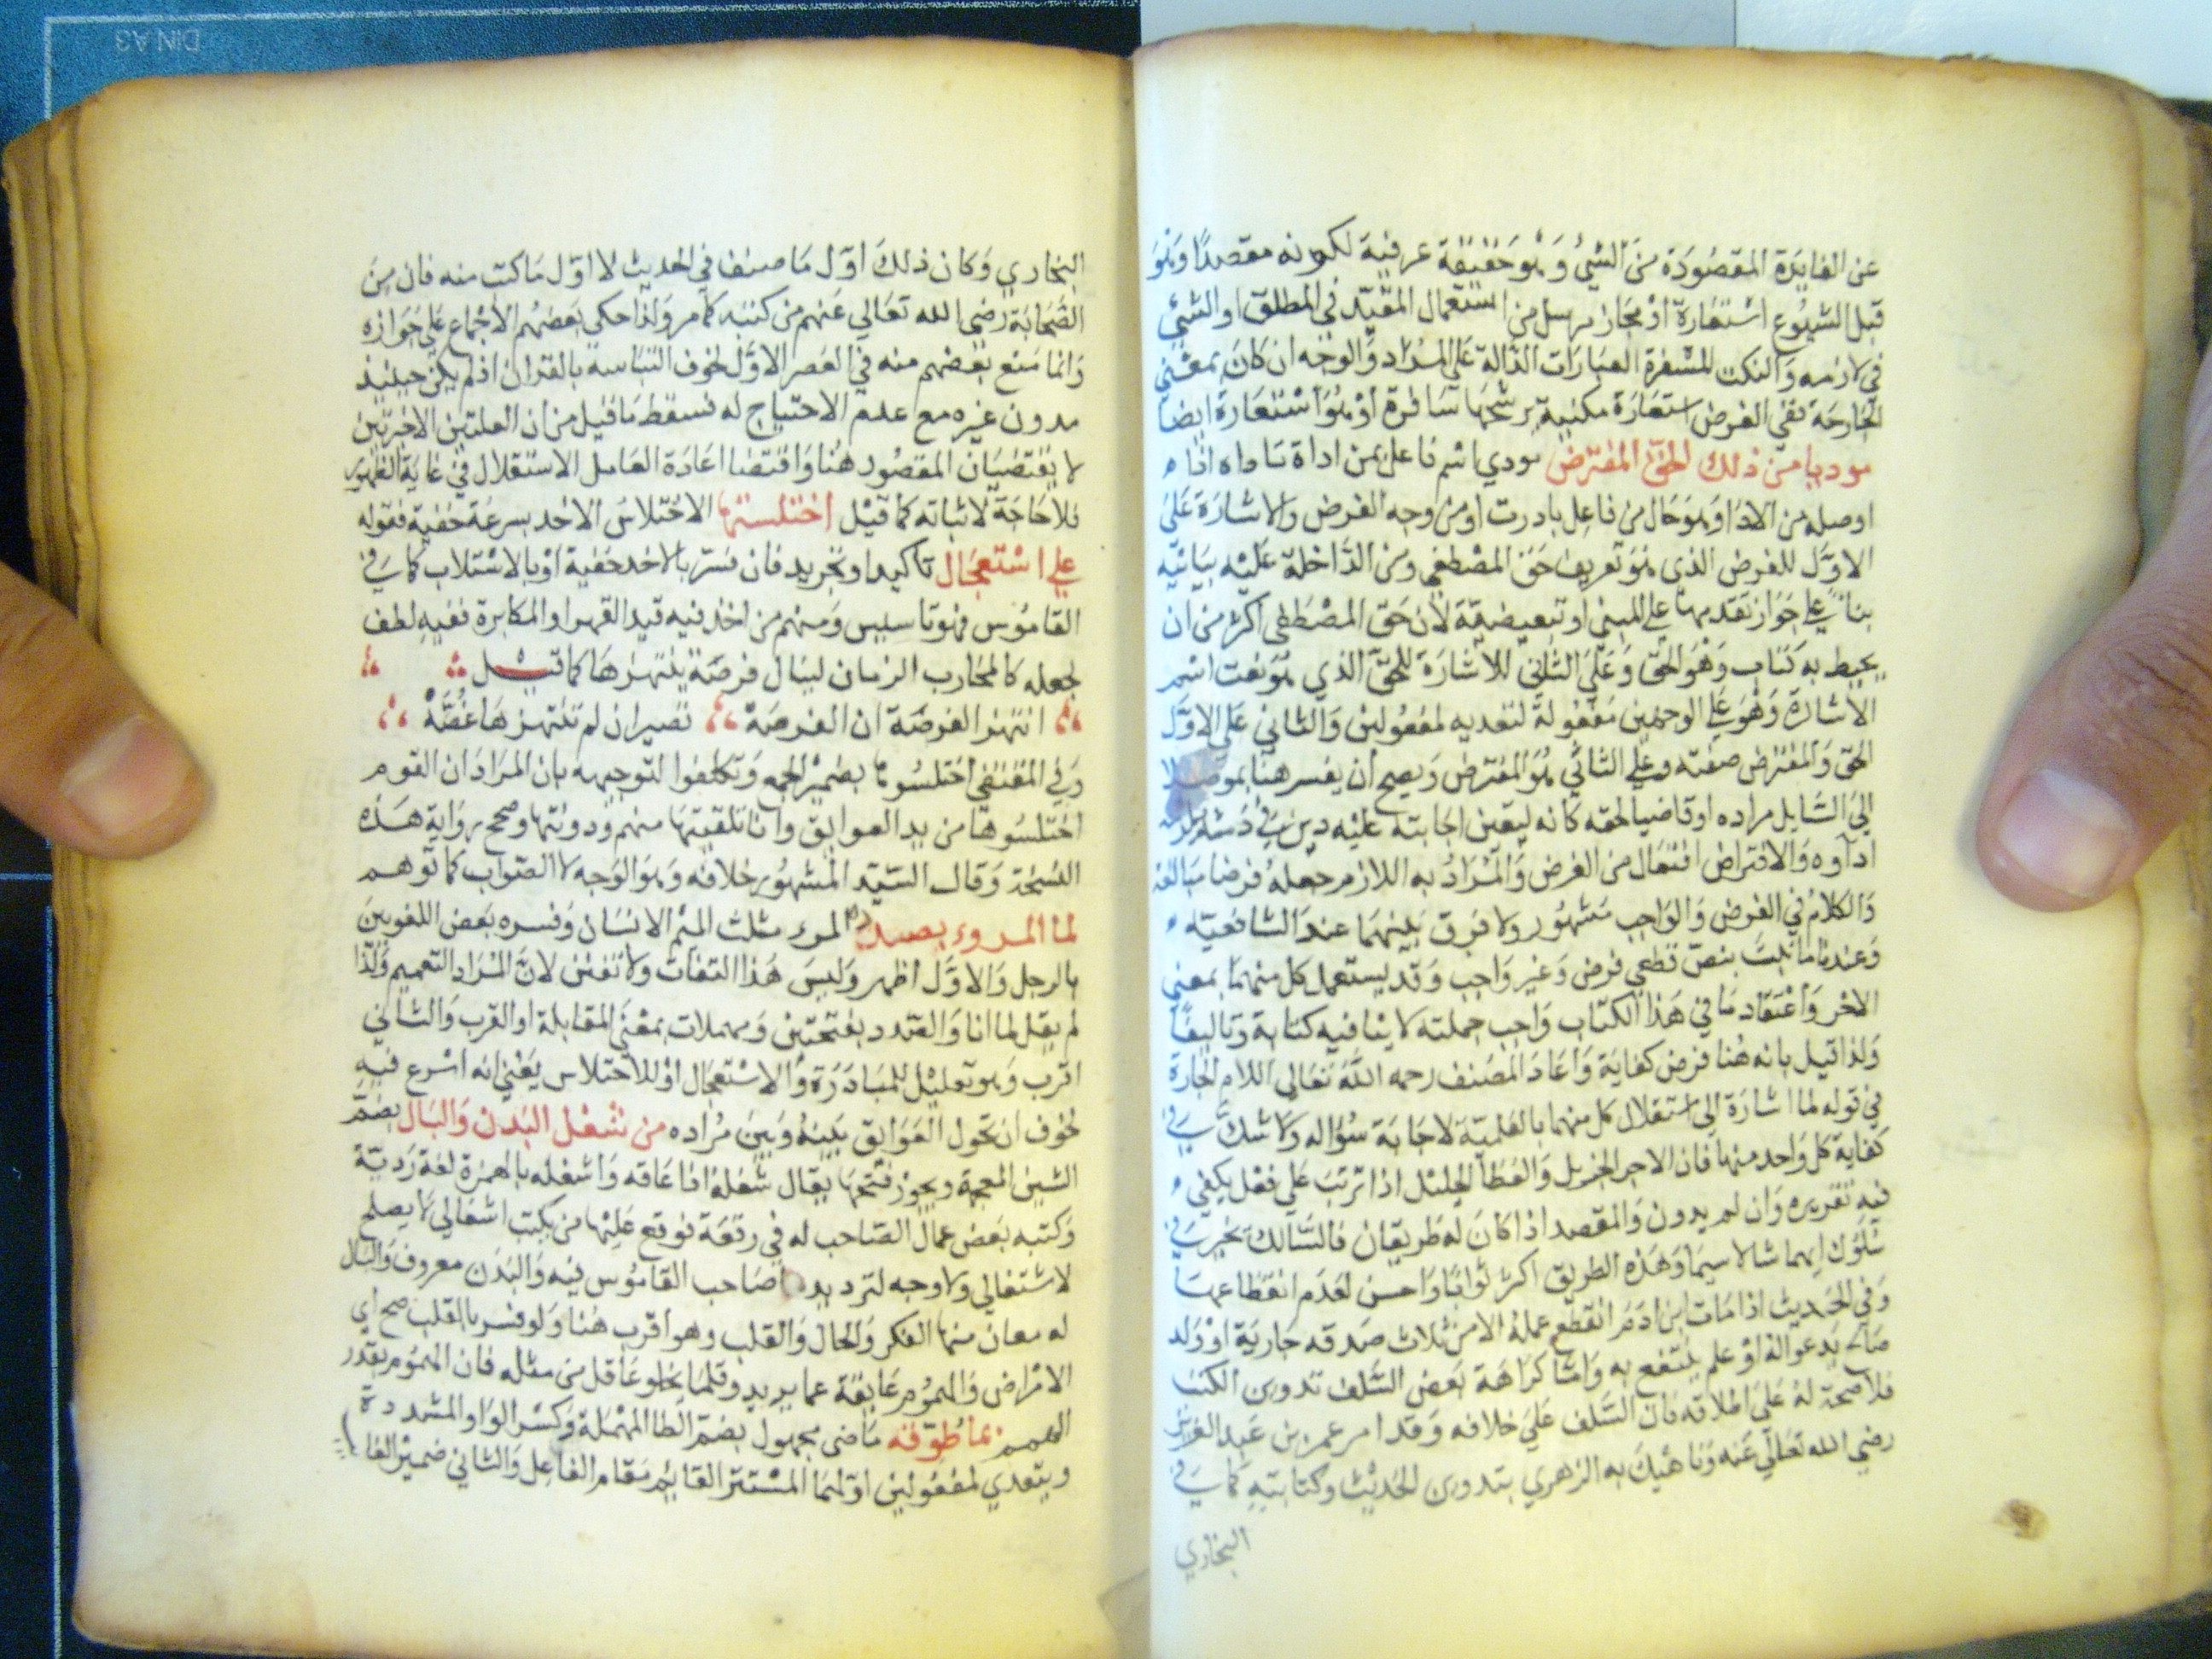 عن الفايدة المقصودة من الشئ وهو حقيقة عرفية لكونه مقصدا وهو
قبل الشيوع استعارة او مجاز مرسل من استعمال المقيد في المطلق او الشئ
في لازمه والنكت المسفرة العبارات الدالة على المراد والوجه ان كان بمعنى
الجارحة ففي الغرض استعارة مكنية رشحها سافرة او هو استعارة ايضا
موديا من ذلك الحق المفترض مودي اسم فاعل من اداه تاداه اذا
اوصله من الادا وهو حال من فاعل بادرت او من وجه الغرض والاشارة على
الاول للغرض الذي هو تعريف حق المصطفى ومن الداخلة عليه بيانية
بناء على جواز تقديمها على المبين او تبعيضية لان حق المصطفى اكثر من ان
يحيط به كتاب وهو الحق وعلى الثاني الاشارة للحق الذي هو نعت اسم
الاشارة وهو على الوجهين مفعوله لتعديه لمفعولين والثاني على الاول
الحق والمفترض صفته وعلى الثاني هو المفترض ويصح ان يفسر هنا بموصلا
الى السايل مراده او قاضيا لحقه كانه ليقين اجابته عليه دين في ذمته يلزمه
اداوه والافتراض افتعال من الفرض والمراد به اللازم جعله فرضا مبالغة
والكلام في الفرض والواجب مشهور ولا فرق بينهما عند الشافعية
وعندنا ما ثبت بنص قطعي فرض وغيره واجب وقد يستعمل كل منهما بمعنى
الاخر واعتقاد ما في هذا الكتاب واجب جملته لا ينافيه كتابة وتاليفا
ولذا قيل بانه هنا فرض كفاية واعاد المصنف رحمه الله تعالى اللام الجارة
في قوله لما اشارة الى استقلال كل منهما بالعلية لاجابة سؤاله ولا شك في
كفاية كل واحد منها فان الاجر الجزيل والعطا الجليل اذا ترتب على فعل يكفي
فيه تقريره وان لم يدون والمقصد اذا كان له طريقان فالسالك يخير في
سلوك ايهما شا لا سيما وهذه الطريق اكثر ثوابا واحسن لعدم انقطاعها
وفي الحديث اذا مات ابن ادم انقطع عمله الا من ثلاث صدقه جارية او ولد
صالح يدعو له او علم ينتفع به واما كراهة بعض السلف تدوين الكتب
فلا صحة له على اطلاقه فان السلف على خلافه وقد امر عمر بن عبد العزيز
رضي الله تعالى عنه وناهيك به الزهري بتدوين الحديث وكتابته كما في
البخاري
البخاري وكان ذلك اول ما صنف في الحديث لا اول ما كتب منه فان من
الصحابة رضي الله تعالى عنهم من كتبه كما مر ولذا حكى بعضهم الاجماع على جوازه
وانما منع بعضهم منه في العصر الاول لخوف التباسه بالقران اذ لم يكن حينيذ
مدون غيره مع عدم الاحتياج له فسقط ما قيل من ان العلتين الاخرتين
لا يقتضيان المقصود هنا واقتضا اعادة العامل الاستقلال في غاية الظهور
فلا حاجة لاثباته كما قيل اختلستها الاختلاس الاخذ بسرعة خفية فقوله
على استعجال تاكيدا وتجريد فان فسر بالاخذ خفية او بالاستلاب كما في
القاموس فهو تاسيس ومنهم من اخذ فيه قيد القهر او المكابرة ففيه لطف
لجعله كالمحارب الزمان لينال فرصة ينتهزها كما قيل
انتهز الفرصة ان الفرصة تصير ان لم تنتهزها غصة
وفي المقتفى اختلسوها بضمير الجمع وتكلفوا لتوجيهه بان المراد ان القوم
اختلسوها من يد العوايق وانا تلقيتها منهم ودونتها وصحح رواية هذه
النسخة وقال السيد المشهور خلافه وهو الوجه لا الصواب كما توهم
لما المرء بصدده المرء مثلث الميم الانسان وفسره بعض اللغويين
بالرجل والاول اظهر وليس هذا التفات ولا تفنن لان المراد التعميم ولذا
لم يقل لما انا والصدد بفتحتين ومهملات بمعنى المقابلة او القرب والثاني
اقرب وهو تعليل للمبادرة والاستعجال او للاختلاس يعني انه اسرع فيه
لخوف ان تحول العوايق بينه وبين مراده من شغل البدن والبال بضم
الشين المعجمة ويجوز فتحها يقال شغله اذا عاقه واشغله بالهمزة لغة ردية
وكتبه بعض عمال الصاحب له في رقعة فوقع عليها من يكتب اشغالي لا يصلح
لاشتغالي ولا وجه لترديد صاحب القاموس فيه والبدن معروف والبال
له معان منها الفكر والحال والقلب وهو اقرب هنا ولو فسر بالقلب صح اي
الامراض والهموم عايقة عما يريد وقلما يخلو عاقل من مثله فان الهموم بقدر
الهمم بما طوقه ماضي مجهول بضم الطا المهملة وكسر الواو المشددة
ويتعدي لمفعولين اولهما المستتر القايم مقام الفاعل والثاني ضمير الغا
DIN A3